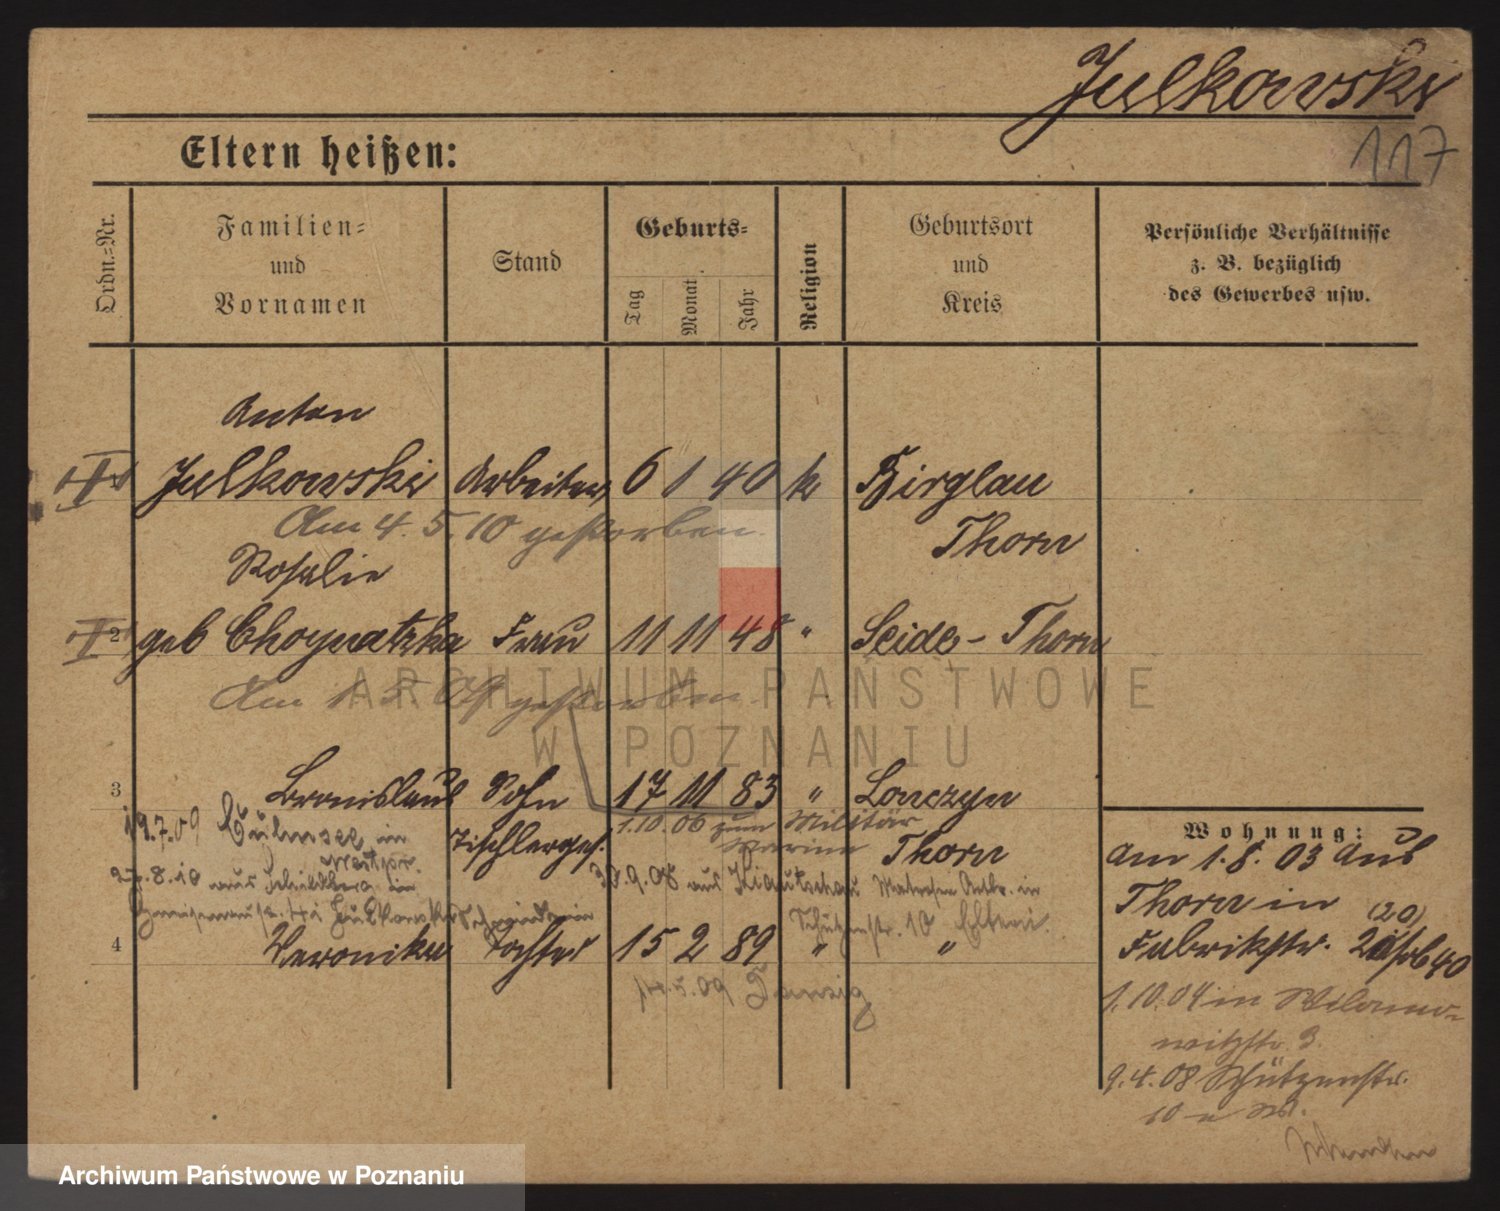 Julkowski
117
Eltern heißen:
Ordn.-Nr.
Familien-
und
Vornamen
Stand
Geburts-
Tag
Monat
Jahr
Religion
Geburtsort
und
Kreis
Persönliche Verhältnisse
z. B. bezüglich
des Gewerbes usw.
Anton
Julkowski Arbeiter 6 1 40 k Birglau
Am 4. 5. 10 gestorben.
Thorn
Rosalie
2 geb Choynatzka Frau 11 11 48 " Seide - Thorn
Am 1. 5. 09 gestorben
3 Bronislaus Sohn 17 11 83 " Lonczyn
1.10.06 zum Militär
Marine
Tischlerges. Thorn
19.7.09 Culmsee in
Westpr.
30.9.08 aus Kiautschau Matrosen Artl. in
8.10 aus Schildberg in
Schützenstr. 10 Eltern.
4 Veronika Tochter 15 2 89 " "
5.09 Danzig
Wohnung:
am 1.8.03 aus
Thorn in
(20)
Fabrikstr.
1.10.04 in Wilamo-
witzstr. 3.
9.4.08 Schützenstr.
10
ARCHIWUM PAŃSTWOWE
W POZNANIU
Archiwum Państwowe w Poznaniu